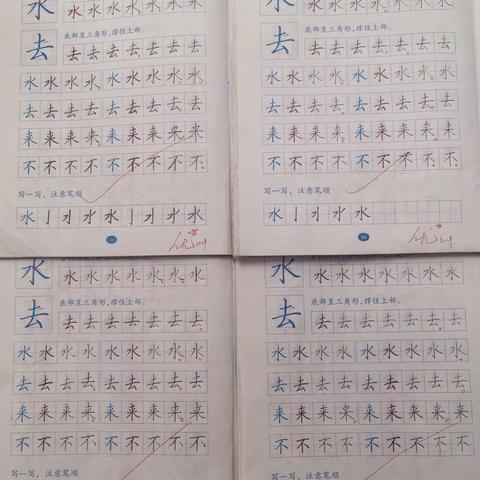 水 水 水 水 水 水 水 水
去 底部呈三角形,撑住上部。
去 去 去 去 去 去 去
水 水 水 水 水 水 水 水
去 去 去 去 去 去 去 去
来 来 来 来 来 来 来 来
不 不 不 不 不 不 不 不
写一写,注意笔顺
水 亅 水 水
水 水 水 水 水 水 水 水
去 底部呈三角形,撑住上部。
去 去 去 去 去 去 去
水 水 水 水 水 水 水 水
去 去 去 去 去 去 去 去
来 来 来 来 来 来 来 来
不 不 不 不 不 不 不 不
写一写,注意笔顺
水 亅 水
94
水 水 水 水 水 水 水 水
去 底部呈三角形,撑住上部。
去 去 去 去 去 去 去
水 水 水 水 水 水 水 水
去 去 去 去 去 去 去 去
来 来 来 来 来 来 来 来
不 不 不 不 不 不 不 不
写一写,注意笔顺
水 水 水 水 水 水 水 水
去 底部呈三角形,撑住上部。
去 去 去 去 去 去 去
水 水 水 水 水 水 水 水
去 去 去 去 去 去 去 去
来 来 来 来 来 来 来 来
不 不 不 不 不 不 不 不
写一写,注意笔顺